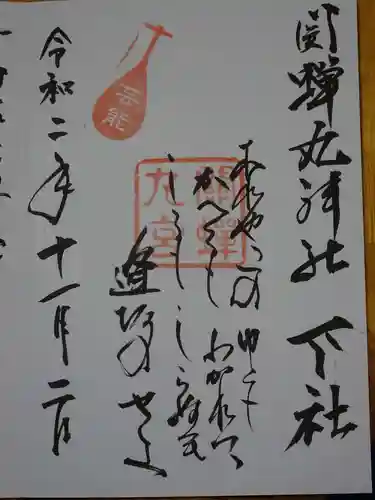 関蝉丸神社 下社
これやこの ゆくも
かへるも わかれて
しるもしらぬも
逢坂のせき
令和二年十一月二日
芸能
関蝉
丸宮